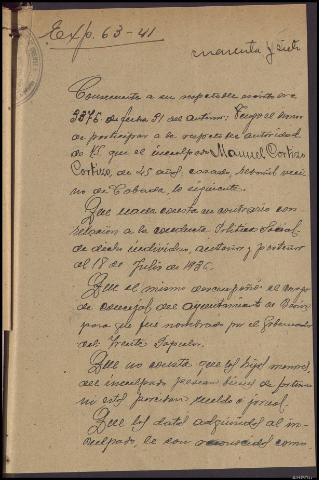 Exp. 63-41
cuarenta y siete
Consecuente a su respetable escrito nº
3376 de fecha 31 del anterior: Tengo el honor
de participar a la respetable autoridad
de VS, que el inculpado Manuel Cortizo
Cortizo, de 45 años, casado, veci
no de , lo siguiente.
Que nada consta en contrario con
relación a la conducta Político Social
de dicho individuo, anterior y posterior
al 18 de Julio de 1936.
Que el mismo desempeñó el cargo
de concejal, del ayuntamiento de
para que fue nombrado por el Gobernador
del Frente Popular.
Que no consta que los hijos menores,
del inculpado posean bienes de fortuna
ni estos perciban sueldo o jornal.
Que los datos adquiridos al in-
culpado, le son reconocidos como